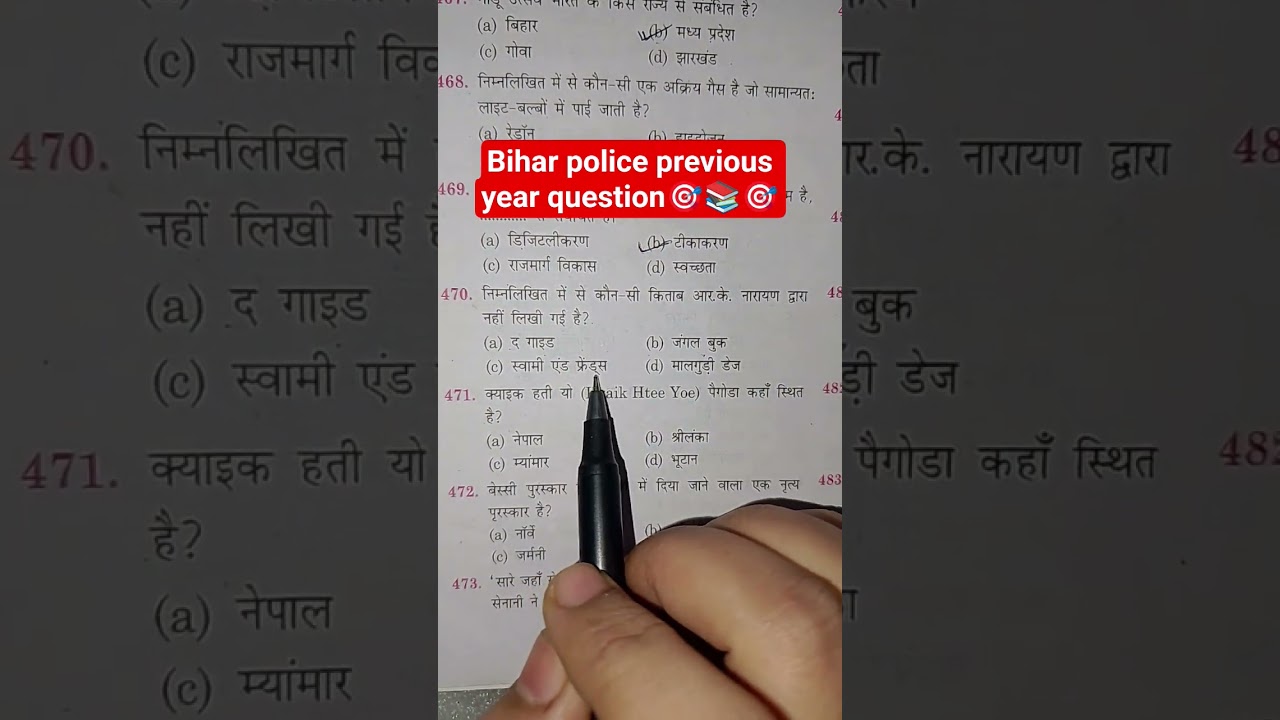 467. मांडू उत्सव भारत के किस राज्य से संबंधित है?
(a) बिहार (b) मध्य प्रदेश
(c) गोवा (d) झारखंड
468. निम्नलिखित में से कौन-सी एक अक्रिय गैस है जो सामान्यत:
लाइट-बल्बों में पाई जाती है?
(a) रेडॉन (b) हाइड्रोजन
Bihar police previous
year question🎯📚🎯
469. है,
(a) डिजिटलीकरण (b) टीकाकरण
(c) राजमार्ग विकास (d) स्वच्छता
470. निम्नंलिखित में से कौन-सी किताब आर.के. नारायण द्वारा
नहीं लिखी गई है?
(a) द गाइड (b) जंगल बुक
(c) स्वामी एंड फ्रेंड्स (d) मालगुड़ी डेज
471. क्याइक हती यो Htee Yoe) पैगोडा कहाँ स्थित
है?
(a) नेपाल (b) श्रीलंका
(c) म्यांमार (d) भूटान
472. बेस्सी पुरस्कार में दिया जाने वाला एक नृत्य
पुरस्कार है?
(a) नॉर्वे (b)
(c) जर्मनी
473. 'सारे जहाँ
सेनानी ने
483